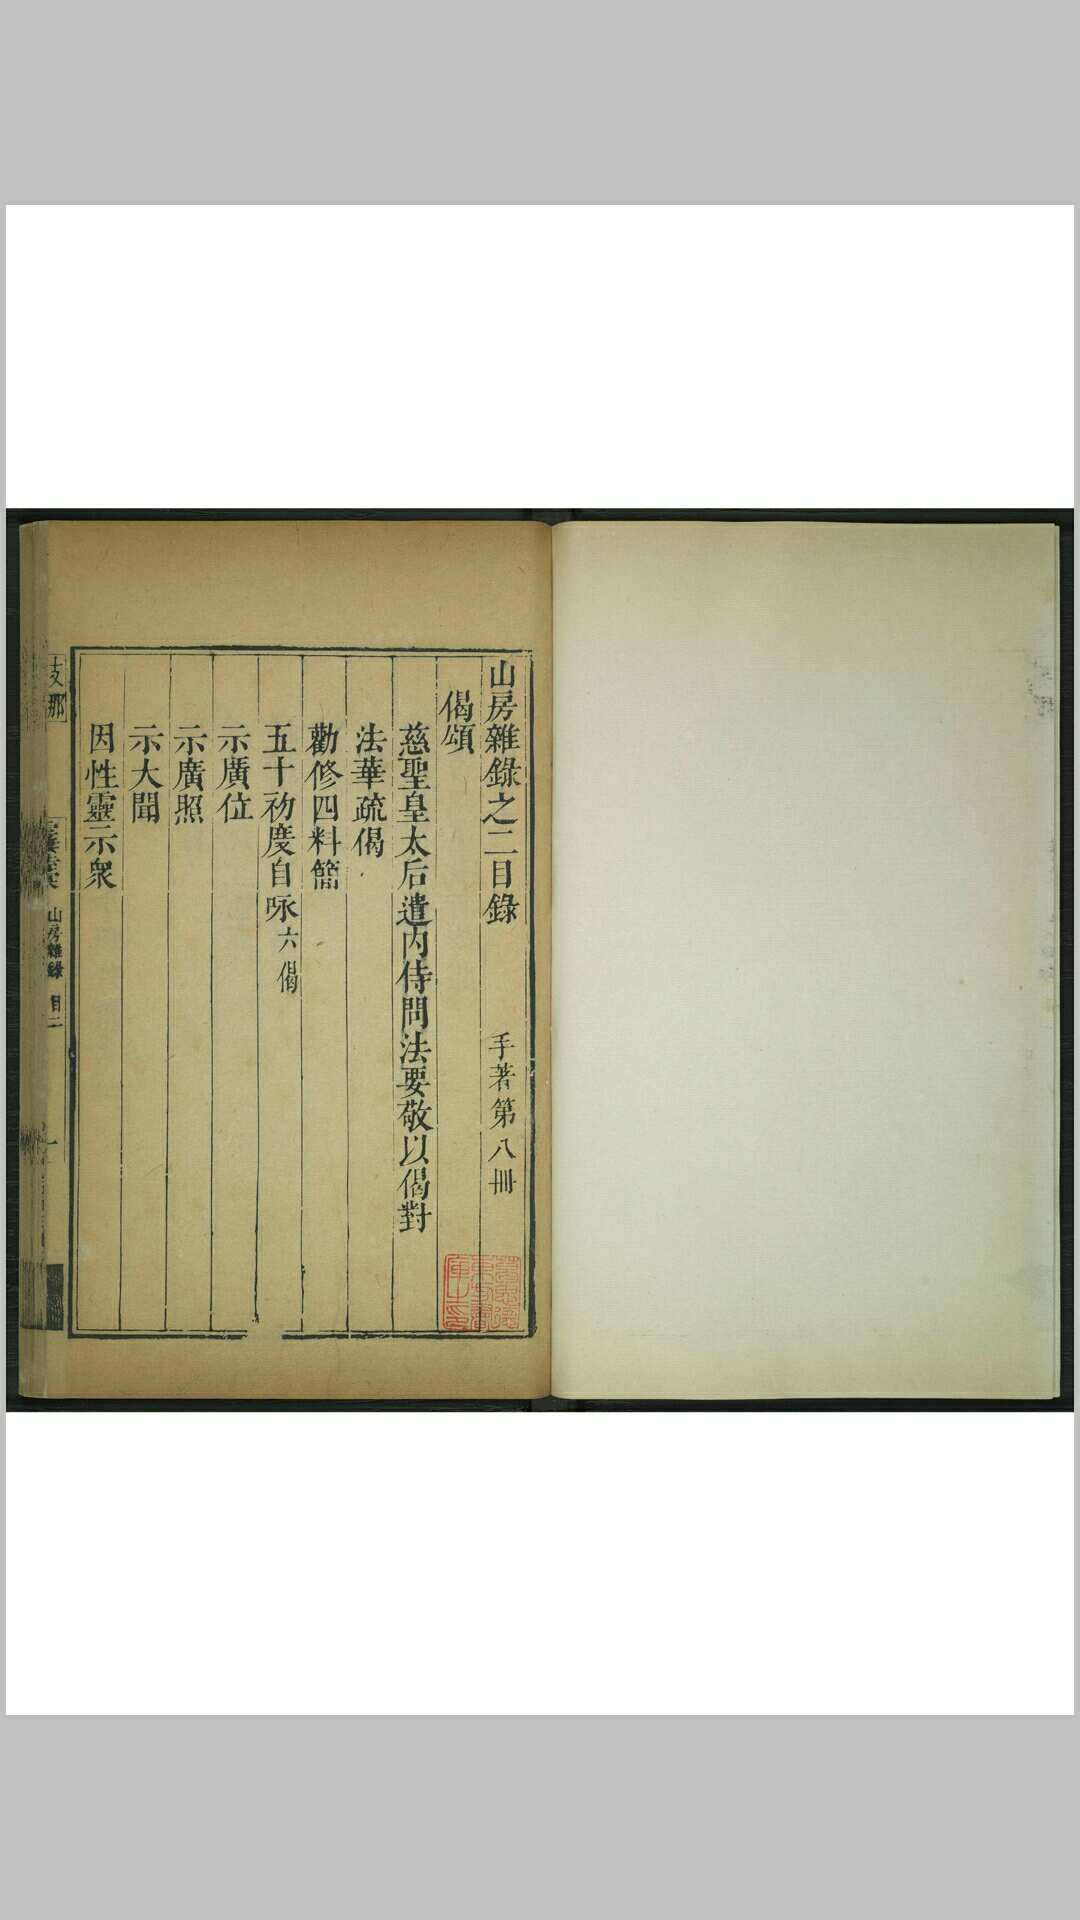 山房雜錄之二目錄 手著第八冊
偈頌
慈聖皇太后遣內侍問法要敬以偈對
法華疏偈
勸修四料簡
五十初度自咏六偈
示廣位
示廣照
示大聞
因性靈示衆
支那
山房雜錄 目二
一